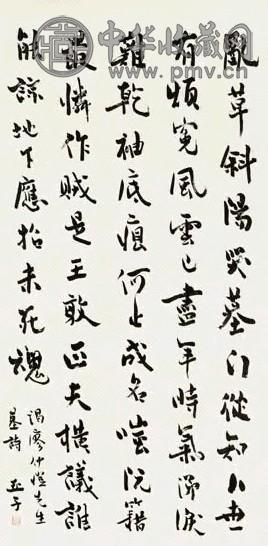 中华收藏网
www.pmv.cn
亂草斜陽哭墓门從知人世
有煩冤風雲已盡年時氣涕淚
難乾袖底痕何止成名嗤阮籍
最憐作賊是王敦匹夫橫議誰
能諒地下應招未死魂
謁廖仲愷先生
墓詩 亞子